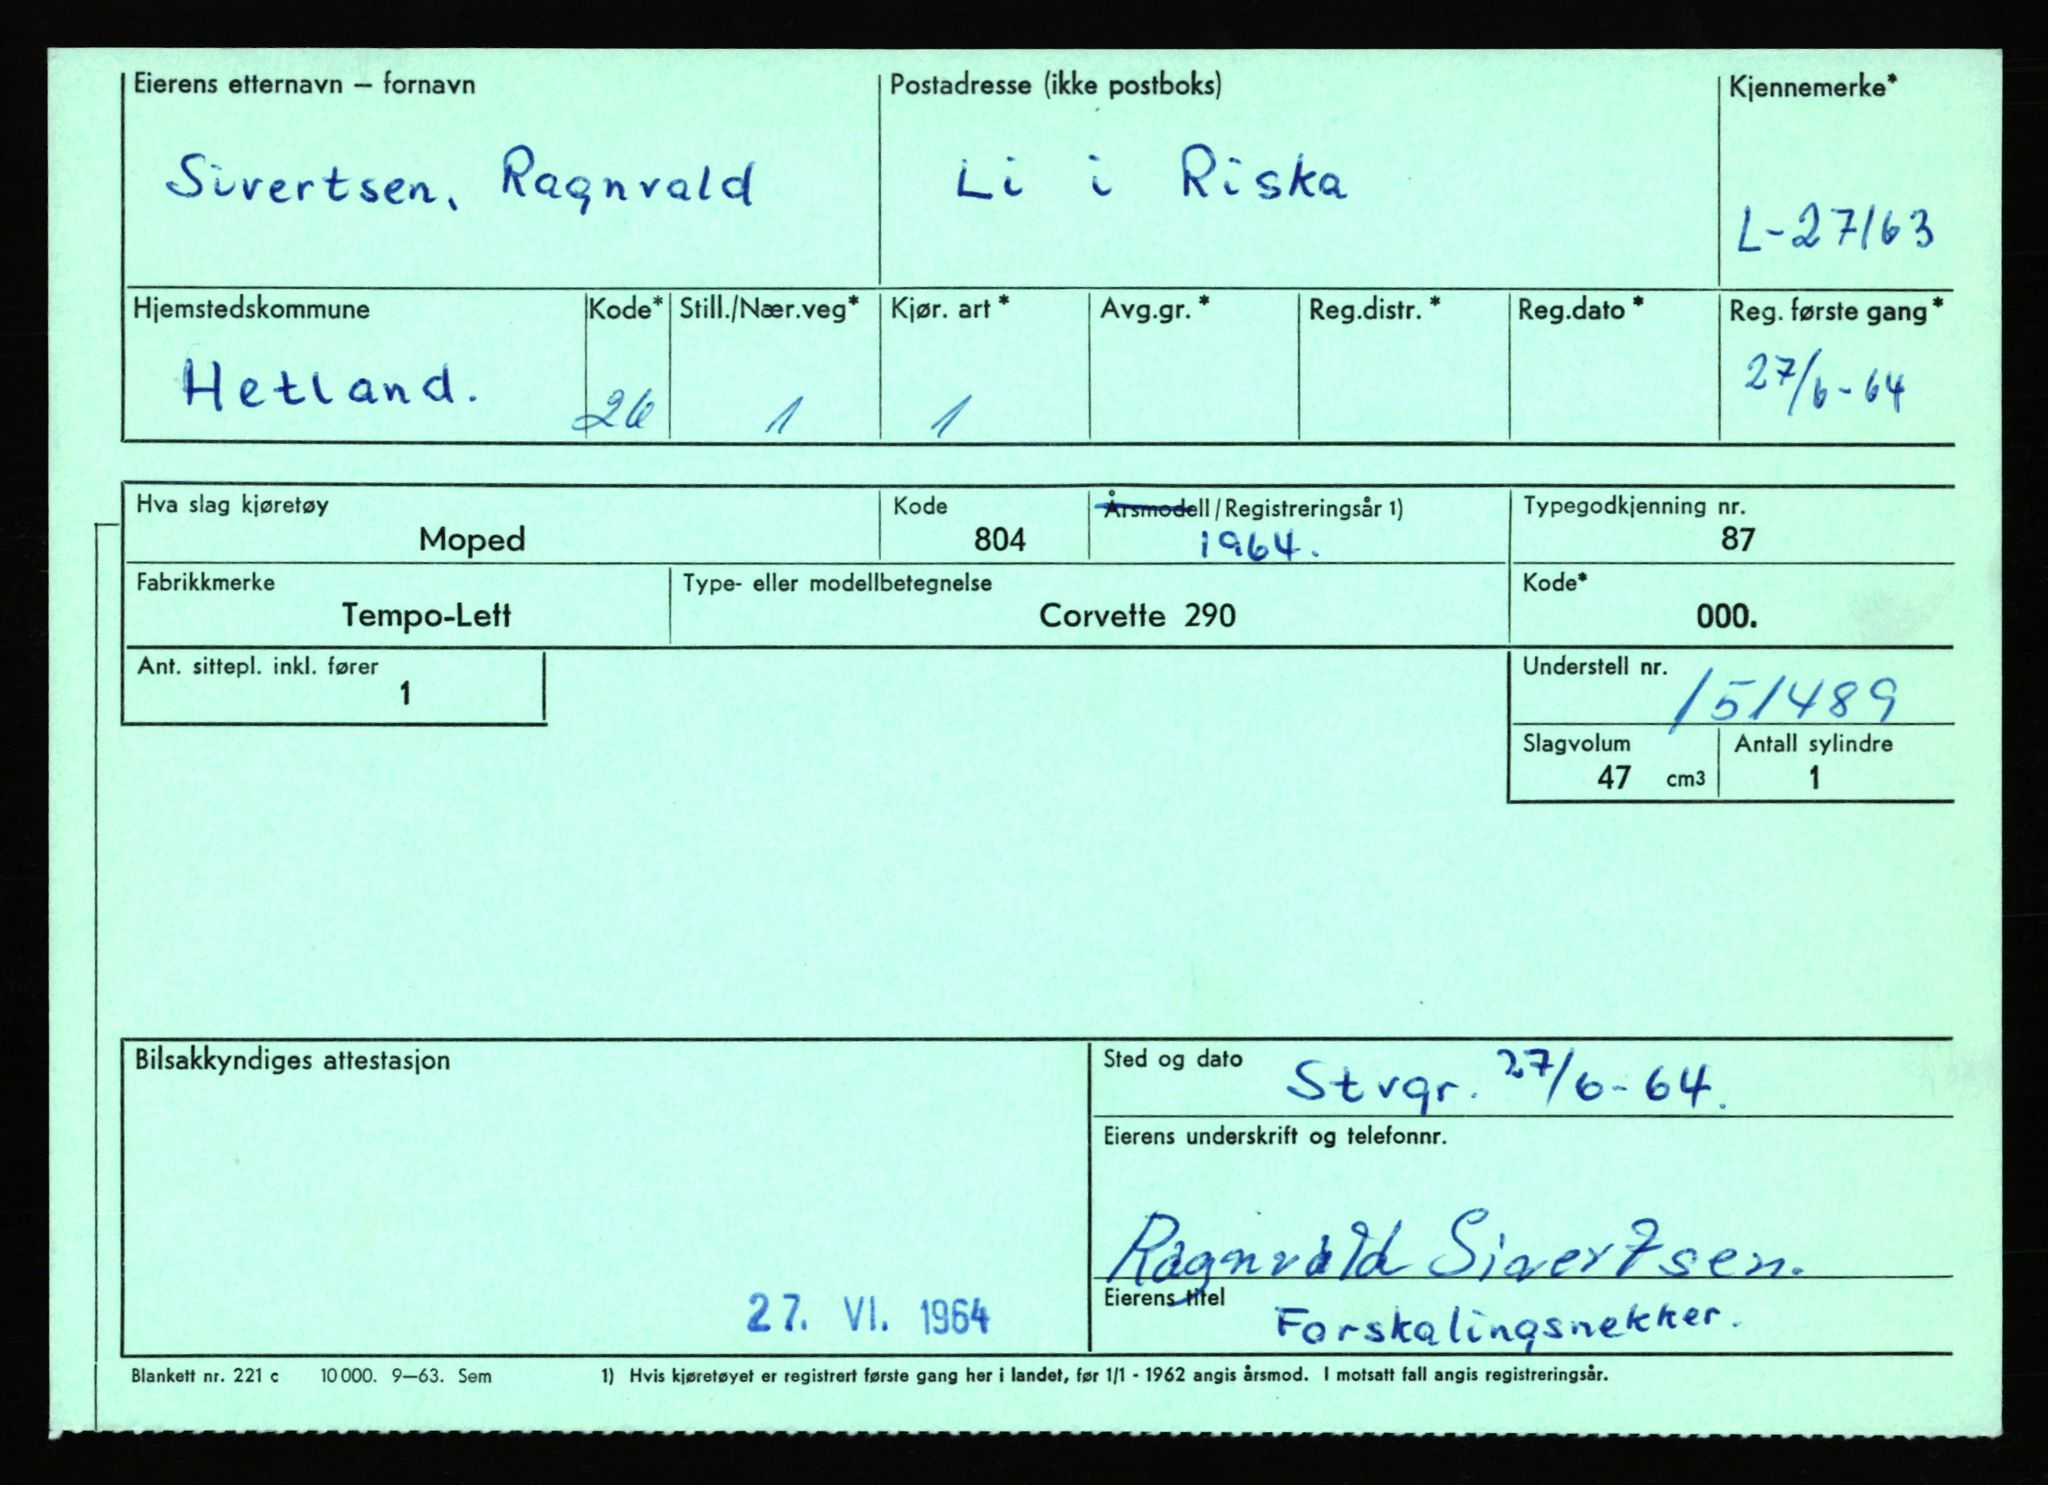 Eierens etternavn – fornavn Postadresse (ikke postboks) Kjennemerke*
Sivertsen, Ragnvald Li i Riska
L-27163
Hjemstedskommune Kode* Still./Nær.veg* Kjør. art* Avg.gr.* Reg.distr.* Reg.dato* Reg. første gang*
Hetland. 26 1 1 27/6-64
Hva slag kjøretøy Kode Årsmodell/Registreringsår 1) Typegodkjenning nr.
Moped 804 1964. 87
Fabrikkmerke Type- eller modellbetegnelse Kode*
Tempo-Lett Corvette 290 000.
Ant. sittepl. inkl. fører Understell nr.
1 151489
Slagvolum Antall sylindre
47 cm3 1
Bilsakkyndiges attestasjon Sted og dato Stvgr. 27/6-64.
Eierens underskrift og telefonnr.
Ragnvald Sivertsen.
Eierens titel
27. VI. 1964 Forskalingsnekker.
Blankett nr. 221 c 10 000. 9–63. Sem 1) Hvis kjøretøyet er registrert første gang her i landet, før 1/1 - 1962 angis årsmod. I motsatt fall angis registreringsår.